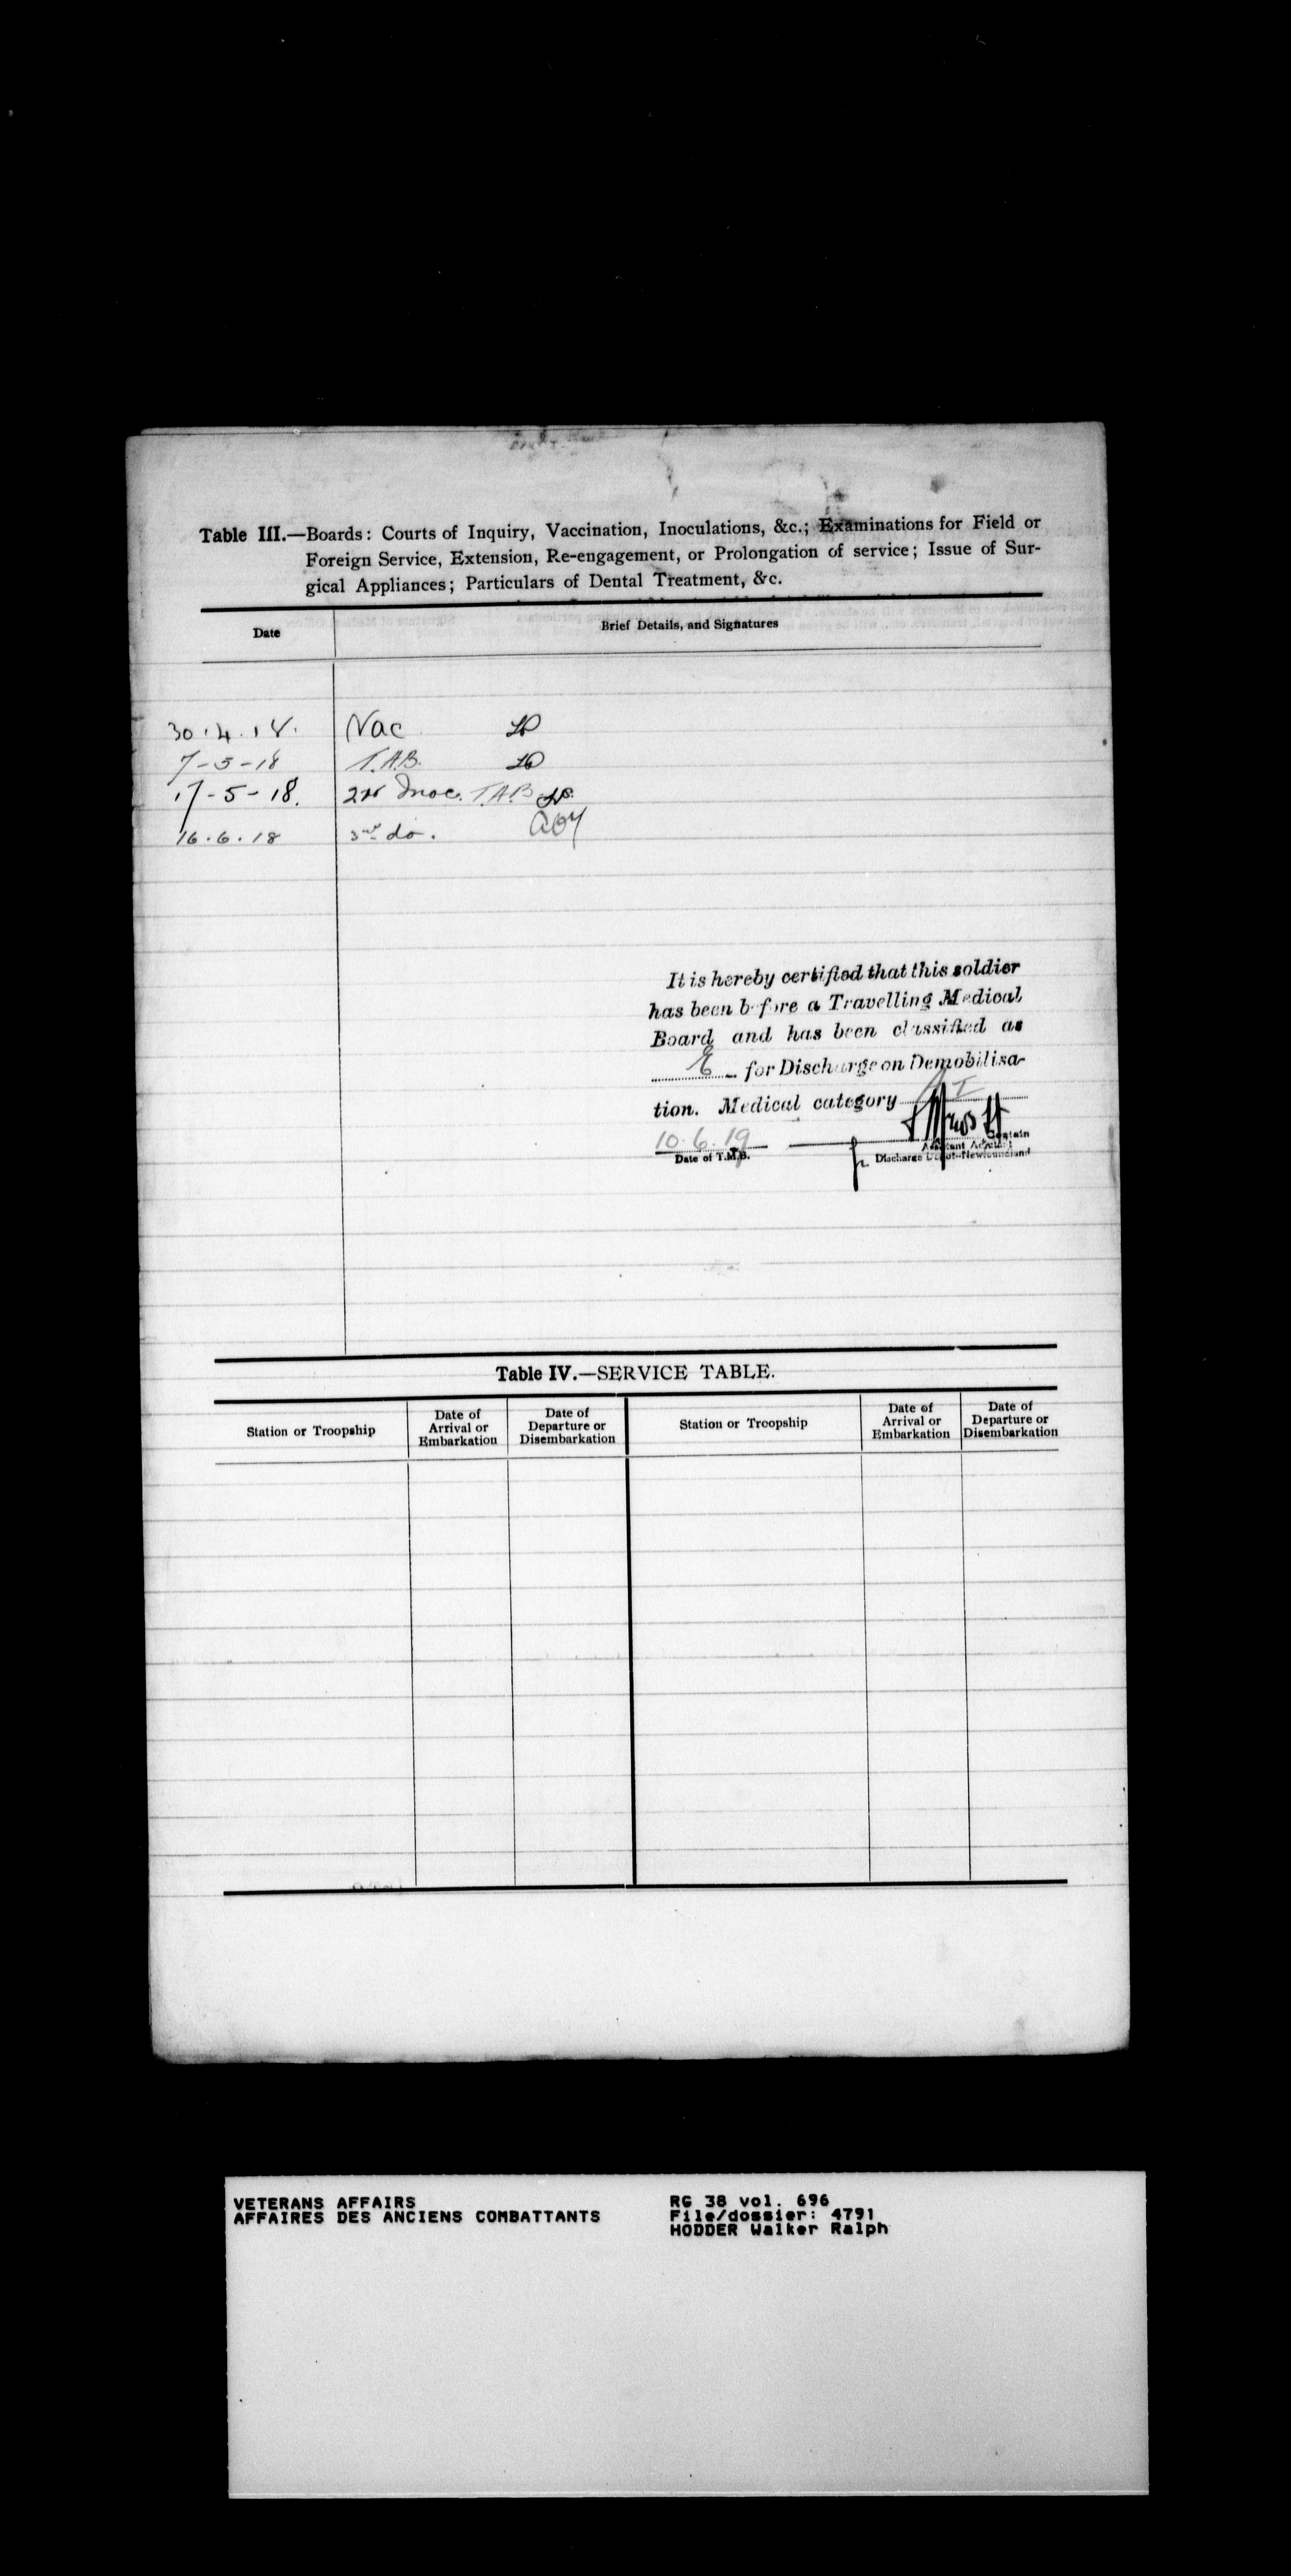 Table III.—Boards: Courts of Inquiry, Vaccination, Inoculations, &c.; Examinations for Field or
Foreign Service, Extension, Re-engagement, or Prolongation of service; Issue of Sur-
gical Appliances; Particulars of Dental Treatment, &c.
Date
Brief Details, and Signatures
30.4.18. Vac
7-5-18 T.A.B.
17-5-18. 2nd Inoc. T.A.B
16.6.18 3rd do.
It is hereby certified that this soldier
has been before a Travelling Medical
Board and has been classified as
E for Discharge on Demobilisa-
tion. Medical category A I
10.6.19
Captain
Date of T.M.B.
Assistant Adjutant
Discharge Depot-Newfoundland
Table IV.—SERVICE TABLE.
Station or Troopship
Date of
Arrival or
Embarkation
Date of
Departure or
Disembarkation
Station or Troopship
Date of
Arrival or
Embarkation
Date of
Departure or
Disembarkation
VETERANS AFFAIRS
AFFAIRES DES ANCIENS COMBATTANTS
RG 38 vol. 696
File/dossier: 4791
HODDER Walker Ralph